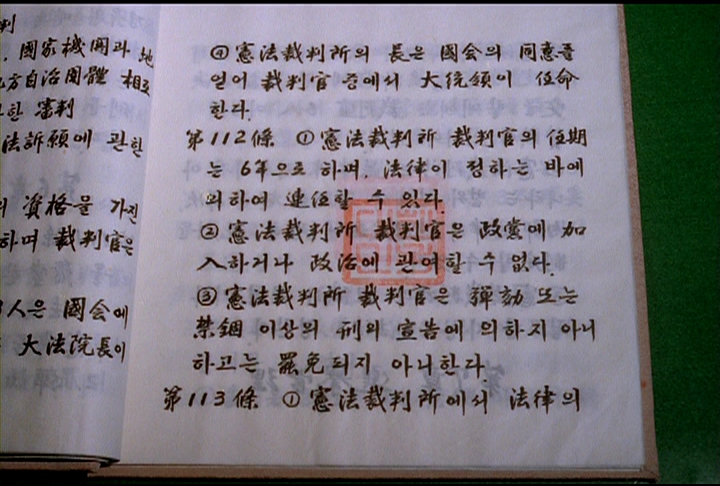 判
國家機関과 地
方自治団體 相互
한 審判
法訴願에 관한
의 資格을 가진
하며 裁判官은
3人은 國会에
大法院長이
④憲法裁判所의 長은 國会의 同意를
얻어 裁判官 중에서 大統領이 任命
한다.
第112條 ①憲法裁判所 裁判官의 任期
는 6年으로 하며, 法律이 정하는 바에
의하여 連任할 수 있다.
②憲法裁判所 裁判官은 政党에 加
入하거나 政治에 관여할 수 없다.
③憲法裁判所 裁判官은 彈劾 또는
禁錮 이상의 刑의 宣告에 의하지 아니
하고는 罷免되지 아니한다
第113條 ①憲法裁判所에서 法律의